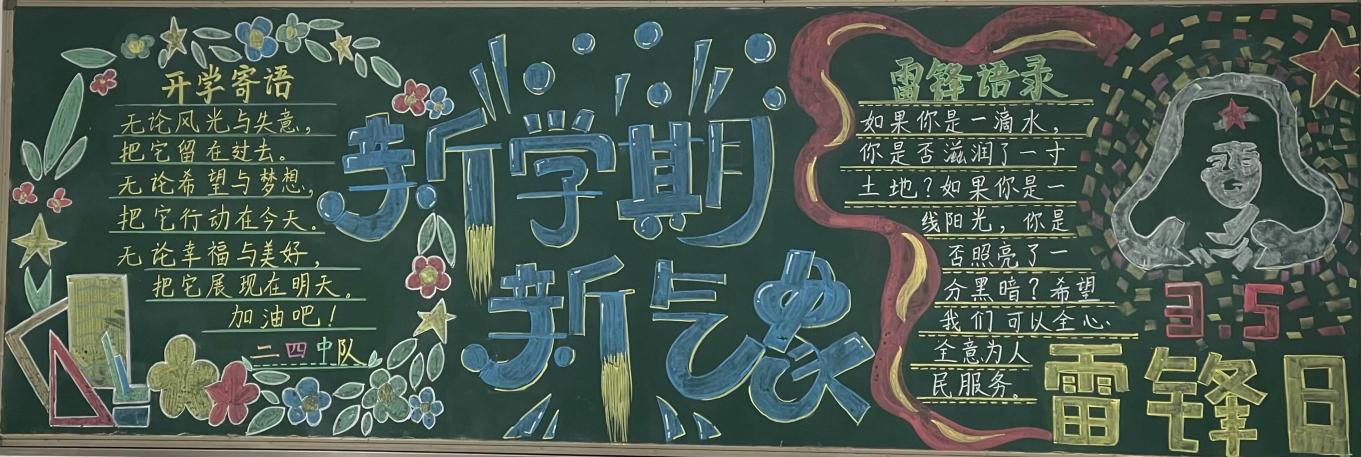 开学寄语
无论风光与失意，
把它留在过去。
无论希望与梦想，
把它行动在今天。
无论幸福与美好，
把它展现在明天。
加油吧！
二四中队
新学期
新气象
雷锋语录
如果你是一滴水，
你是否滋润了一寸
土地？如果你是一
线阳光，你是
否照亮了一
分黑暗？希望
我们可以全心
全意为人
民服务。
3.5
雷锋日